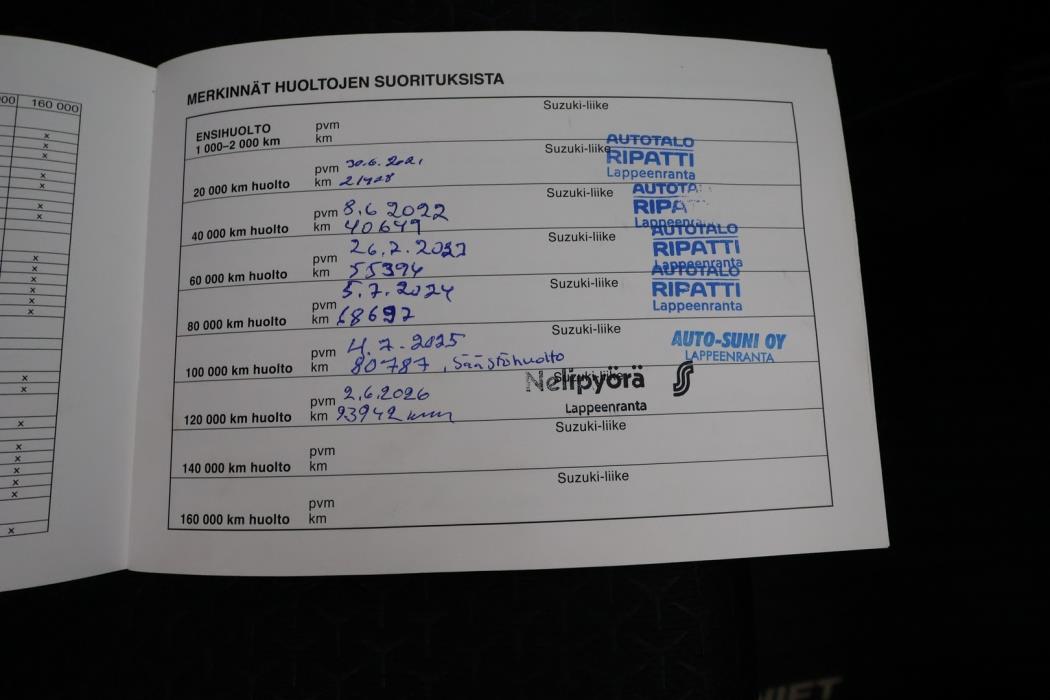 00 160 000
MERKINNÄT HUOLTOJEN SUORITUKSISTA
ENSIHUOLTO
1 000–2 000 km
pvm
km
Suzuki-liike
20 000 km huolto
pvm 30.6.2021
km 21428
Suzuki-liike
AUTOTALO
RIPATTI
Lappeenranta
40 000 km huolto
pvm 8.6 2022
km 40649
Suzuki-liike
AUTOTA
RIPA
Lappeenra
60 000 km huolto
pvm 26.7.2023
km 55394
Suzuki-liike
AUTOTALO
RIPATTI
Lappeenranta
80 000 km huolto
pvm 5.7.2024
km 68697
Suzuki-liike
AUTOTALO
RIPATTI
Lappeenranta
100 000 km huolto
pvm 4.7.2025
km 80787, Säästöhuolto
Suzuki-liike
AUTO-SUNI OY
LAPPEENRANTA
120 000 km huolto
pvm 2.6.2026
km 93942 km
Suzuki-liike
Nelipyörä
Lappeenranta
140 000 km huolto
pvm
km
Suzuki-liike
160 000 km huolto
pvm
km
Suzuki-liike